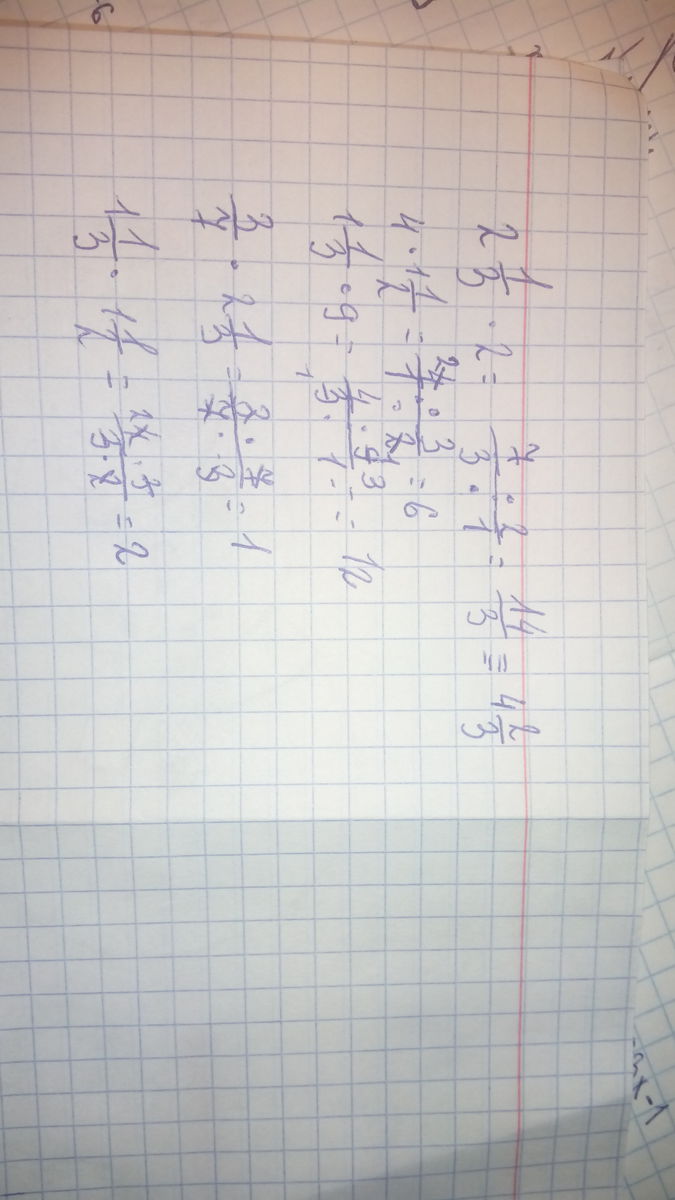 2 1/3 · 2 = 7 · 2 / 3 · 1 = 14/3 = 4 2/3
4 · 1 1/2 = 4 2 · 3 / 1 · 2 1 = 6
1 1/3 · 9 = 4 · 9 3 / 3 1 · 1 = = 12
3/7 · 2 1/3 = 3 · 7 / 7 · 3 = 1
1 1/3 · 1 1/2 = 2 4 · 3 / 3 · 2 = 2